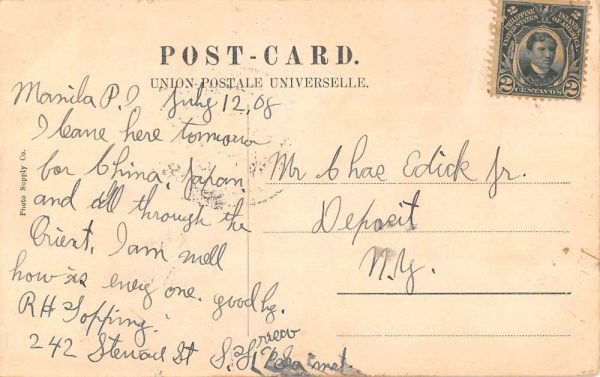 POST-CARD.
UNION POSTALE UNIVERSELLE.
2 2
PHILIPPINE ISLANDS
UNITED STATES OF AMERICA
2 CENTAVOS 2
Photo Supply Co.
Manila P.I July 12, 08
I leave here tomorrow
for China, Japan
and all through the
Orient. I am well
how is every one. good by.
RH Topping.
242 Steward St S.F.
Mr Chas Edick Jr.
Deposit
N.Y.